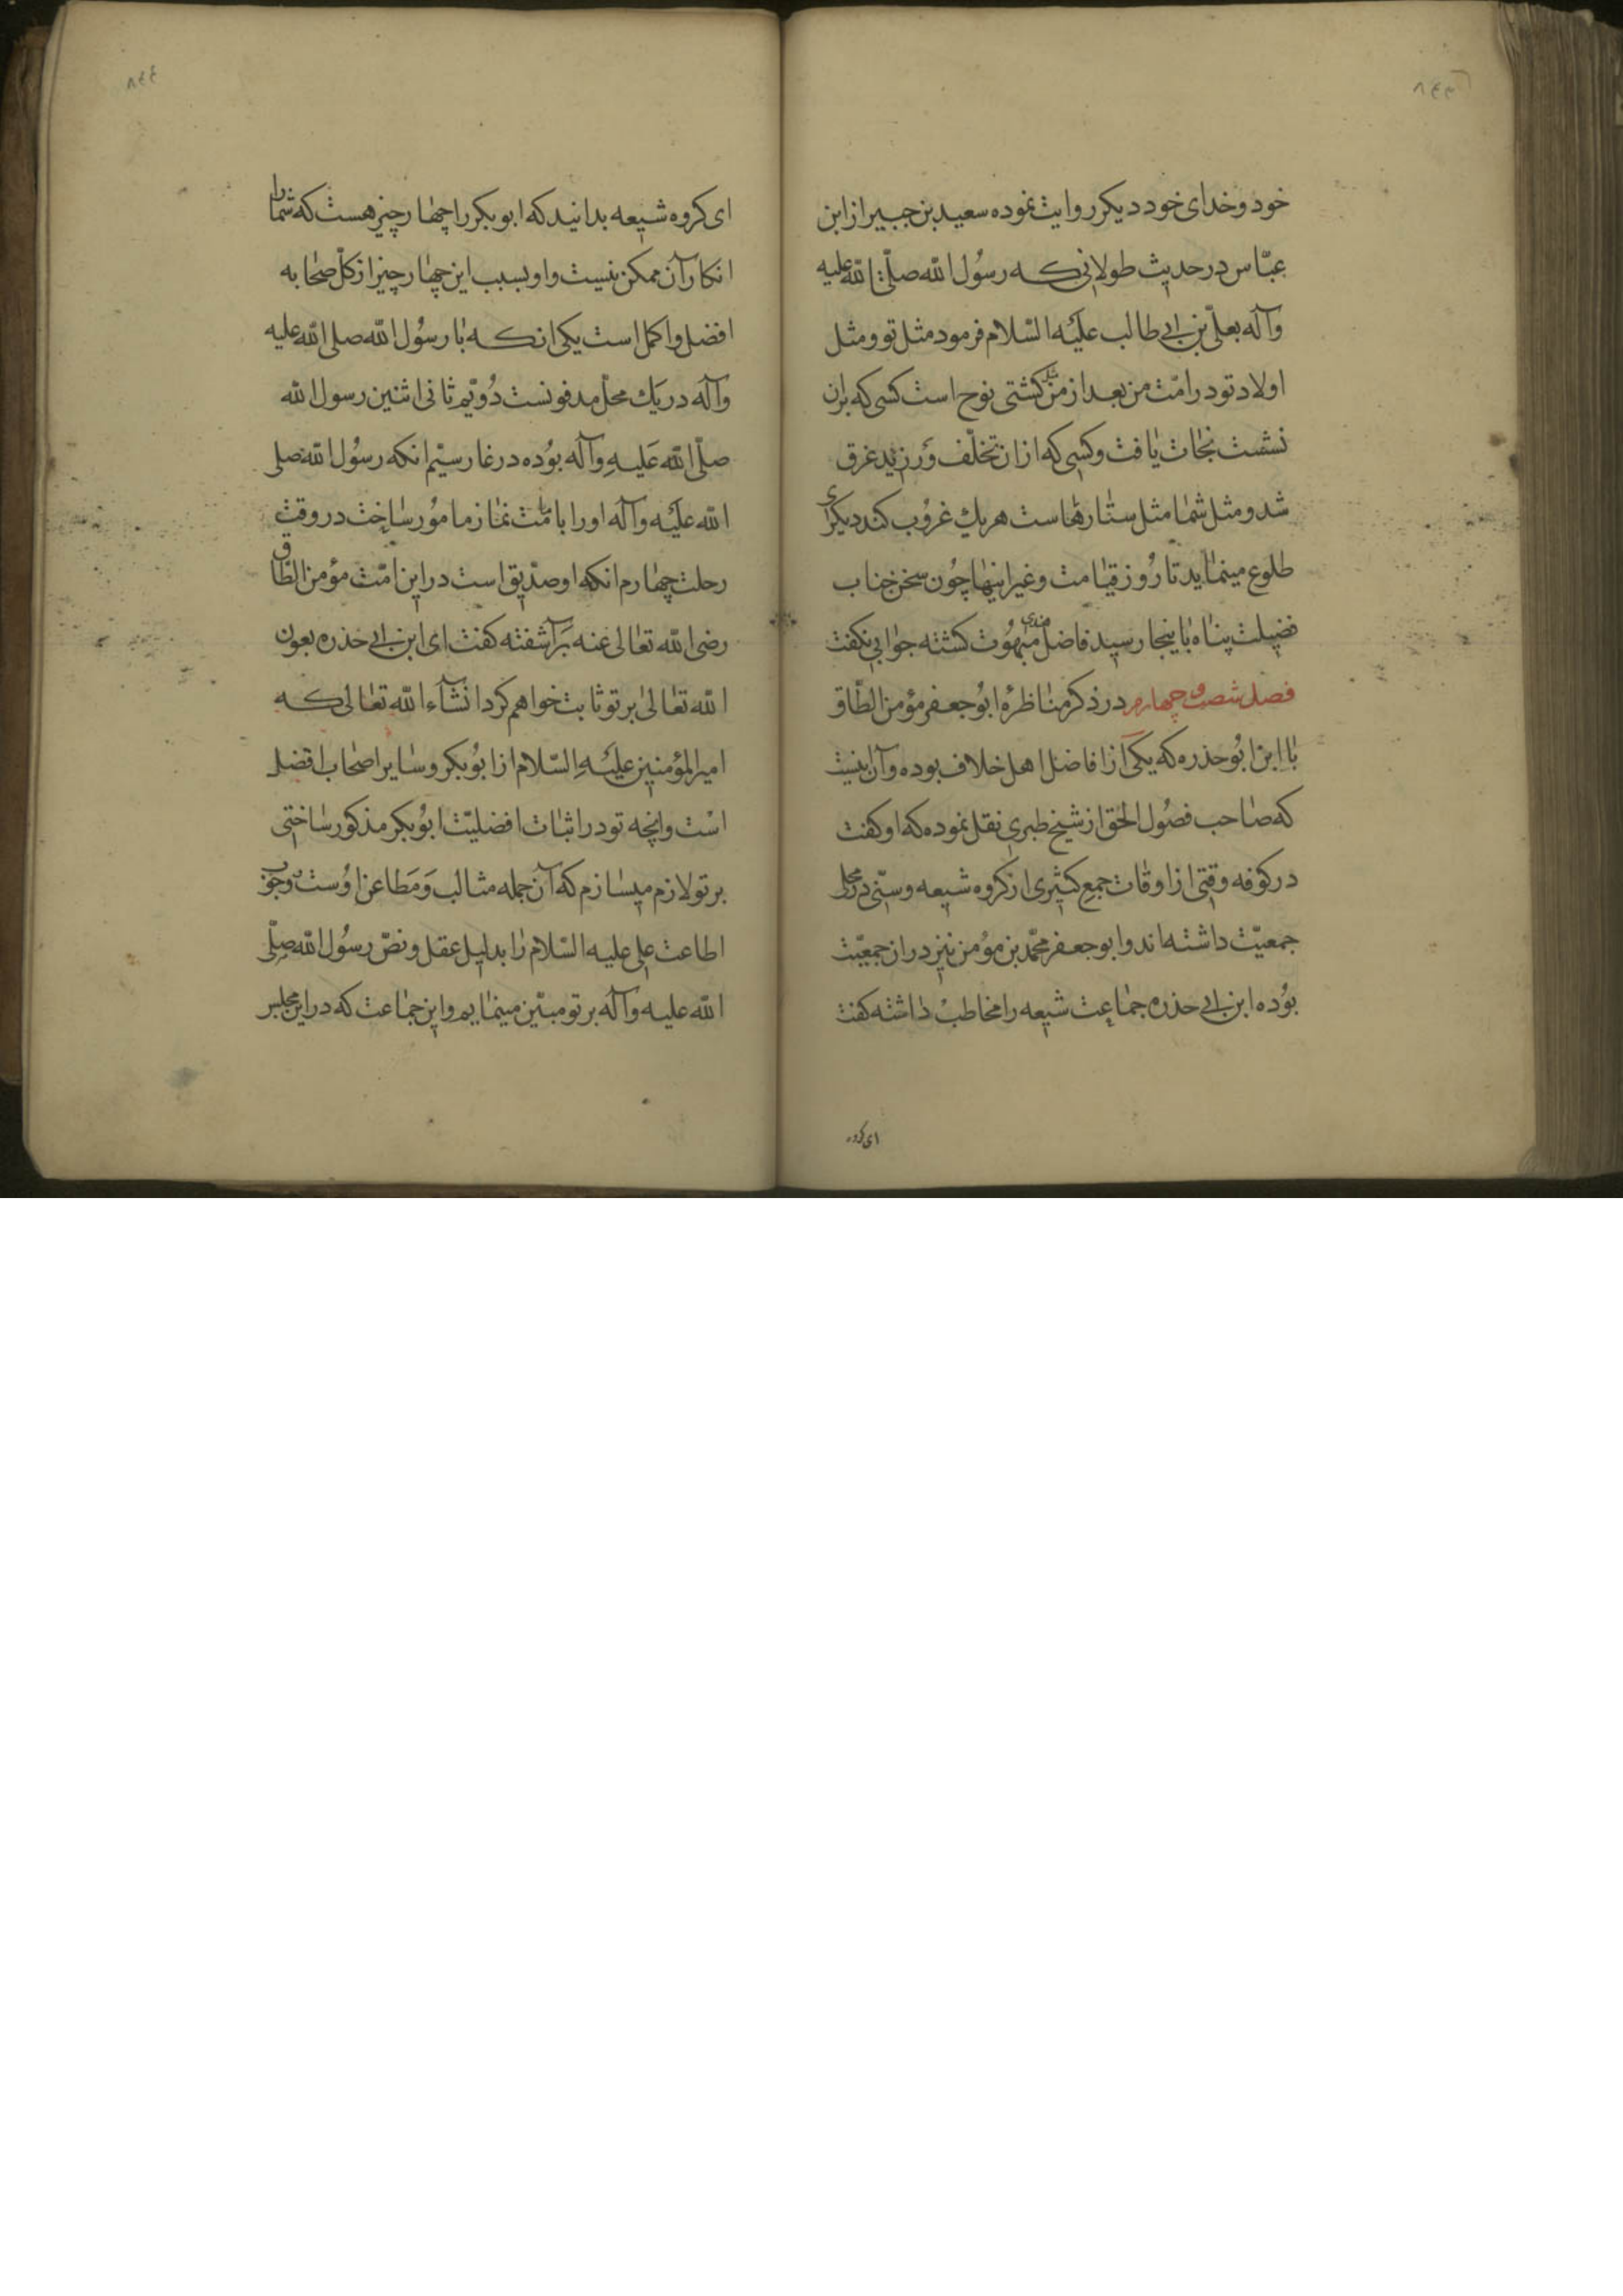 ٨٤٣
خود و خدای خود دیکر روایت نموده سعید بن جبیر از ابن
عبّاس در حدیث طولانی که رسُول الله صلّی الله علیه
وآله بعلّی بن ابی طالب علیَه السّلام فرمود مثل تو و مثل
اولاد تو در امّت من بعد از من مثل کشتی نوح است کسی که بران
نشست نجات یافت و کسی که ازان تخلّف وَرزید غرق
شد و مثل شما مثل ستارهاست هر یك غرُوب کند دیکرای
طلوع مینماید تا رُوز قیامت و غیر اینها چُون سخن جناب
فضیلت پناه باینجا رسید فاضل هندی مبهُوت کشته جوابی نکفت
فصل شصت و چهارم در ذکر مناظرهٔ ابُو جعفر مؤمن الطّاق
با ابن ابُو حذره که یکی از افاضل اهل خلاف بوده و آن اینست
که صاحب فصُول الحق از شیخ طبری نقل نموده که او کفت
در کوفه وقتی از اوقات جمع کثیری از کروه شیعه و سنّی در محل
جمعیّت داشته اند و ابو جعفر محمّد بن مؤمن نیز دران جمعیّت
بوُده ابن ابی حذره جماعت شیعه را مخاطبْ داشته کفت
ای کروه
٨٤٤
ای کروه شیعه بدانید که ابو بکر را چهار چیز هست که شما را
انکار آن ممکن نیست و او بسبب این چهار چیز از کلّ صحابه
افضل و اکمل است یکی انکه با رسُول الله صلی الله علیه
وآله در یَك محلّ مدفونست دُویّم ثانی اثنین رسول الله
صلّی الله عَلیهِ وآله بوُده در غار سیّم انکه رسُول الله صلی
الله علیَه وآله او را بامامت نماز مامُور ساخت در وقت
رحلت چهارم انکه او صدّیق است در این امّت مؤمن الطاق
رضی الله تعالی عنه بَرآشفته کفت ای ابن ابی حذره بعون
الله تعالیٰ بر تو ثابت خواهم کرد انشآء الله تعالی که
امیرالمؤمنین علیَهِ السّلام از ابوُبکر و سایر اصحاب افضل
است و انچه تو در اثبات افضلیّت ابوُبکر مذکور ساختی
بر تو لازم میسازم که آن جمله مثالب وَ مَطاعن اوُست و وجوب
اطاعت علی علیه السّلام را بدلیل عقل و نصّ رسُول الله صلّی
الله علیه وآله بر تو مبیّن مینمایم و این جماعت که در این مجلس